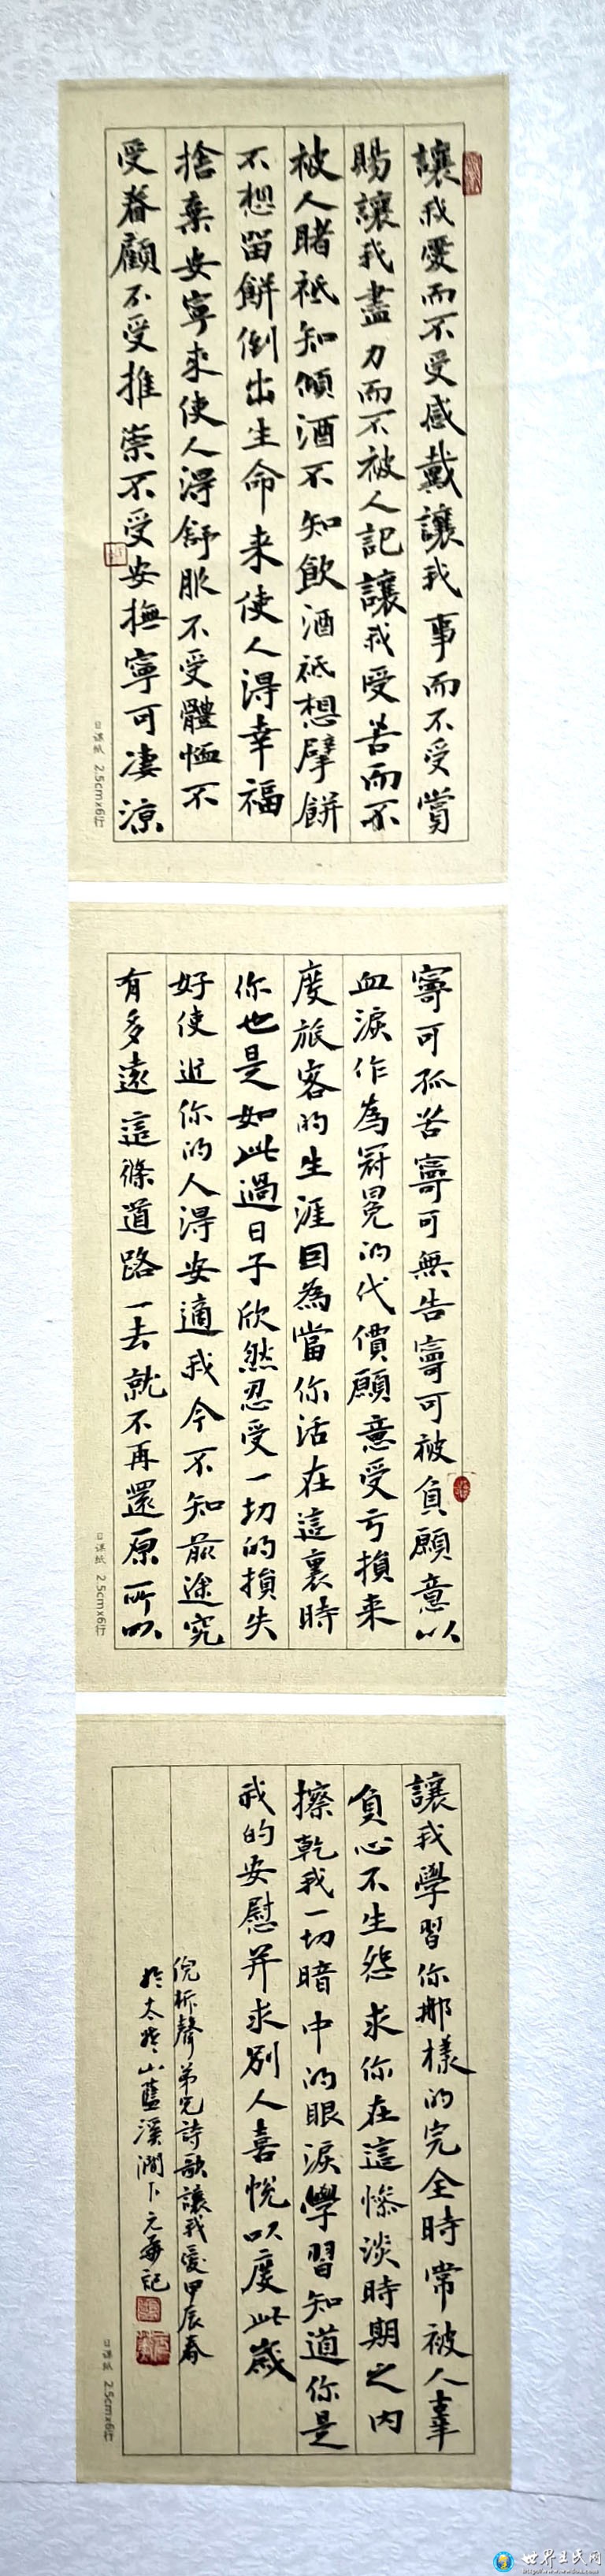 讓我愛而不受感戴讓我事而不受賞
賜讓我盡力而不被人記讓我受苦而不
被人睹祗知傾酒不知飲酒祗想擘餅
不想留餅倒出生命来使人得幸福
捨棄安寧来使人得舒服不受體恤不
受眷顧不受推崇不受安撫寧可凄涼
日课纸 2.5cm×6行
寧可孤苦寧可無告寧可被負願意以
血淚作為冠冕的代價願意受亏損来
度旅客的生涯因為當你活在這裏時
你也是如此過日子欣然忍受一切的損失
好使近你的人得安適我今不知前途究
有多遠這條道路一去就不再還原所以
日课纸 2.5cm×6行
讓我學習你那樣的完全時常被人辜
負心不生怨求你在這慘淡時期之内
擦乾我一切暗中的眼淚學習知道你是
我的安慰并求别人喜悅以度此歲
倪柝聲弟兄詩歌讓我愛甲辰春
於太姥山藍溪澗下元華記
日课纸 2.5cm×6行
世界王氏网